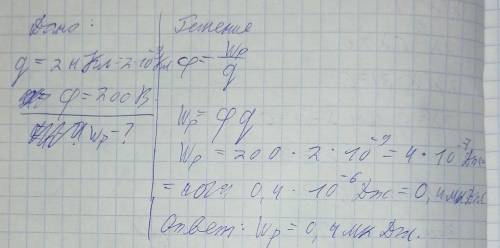 Дано:
q = 2 нКл = 2·10⁻⁹ Кл
φ = 200 В
Wp - ?
Решение
φ = Wp/q
Wp = φq
Wp = 200 · 2 · 10⁻⁹ = 4 · 10⁻⁷ Дж =
= 0,4 · 10⁻⁶ Дж = 0,4 мкДж
Ответ: Wp = 0,4 мк Дж.